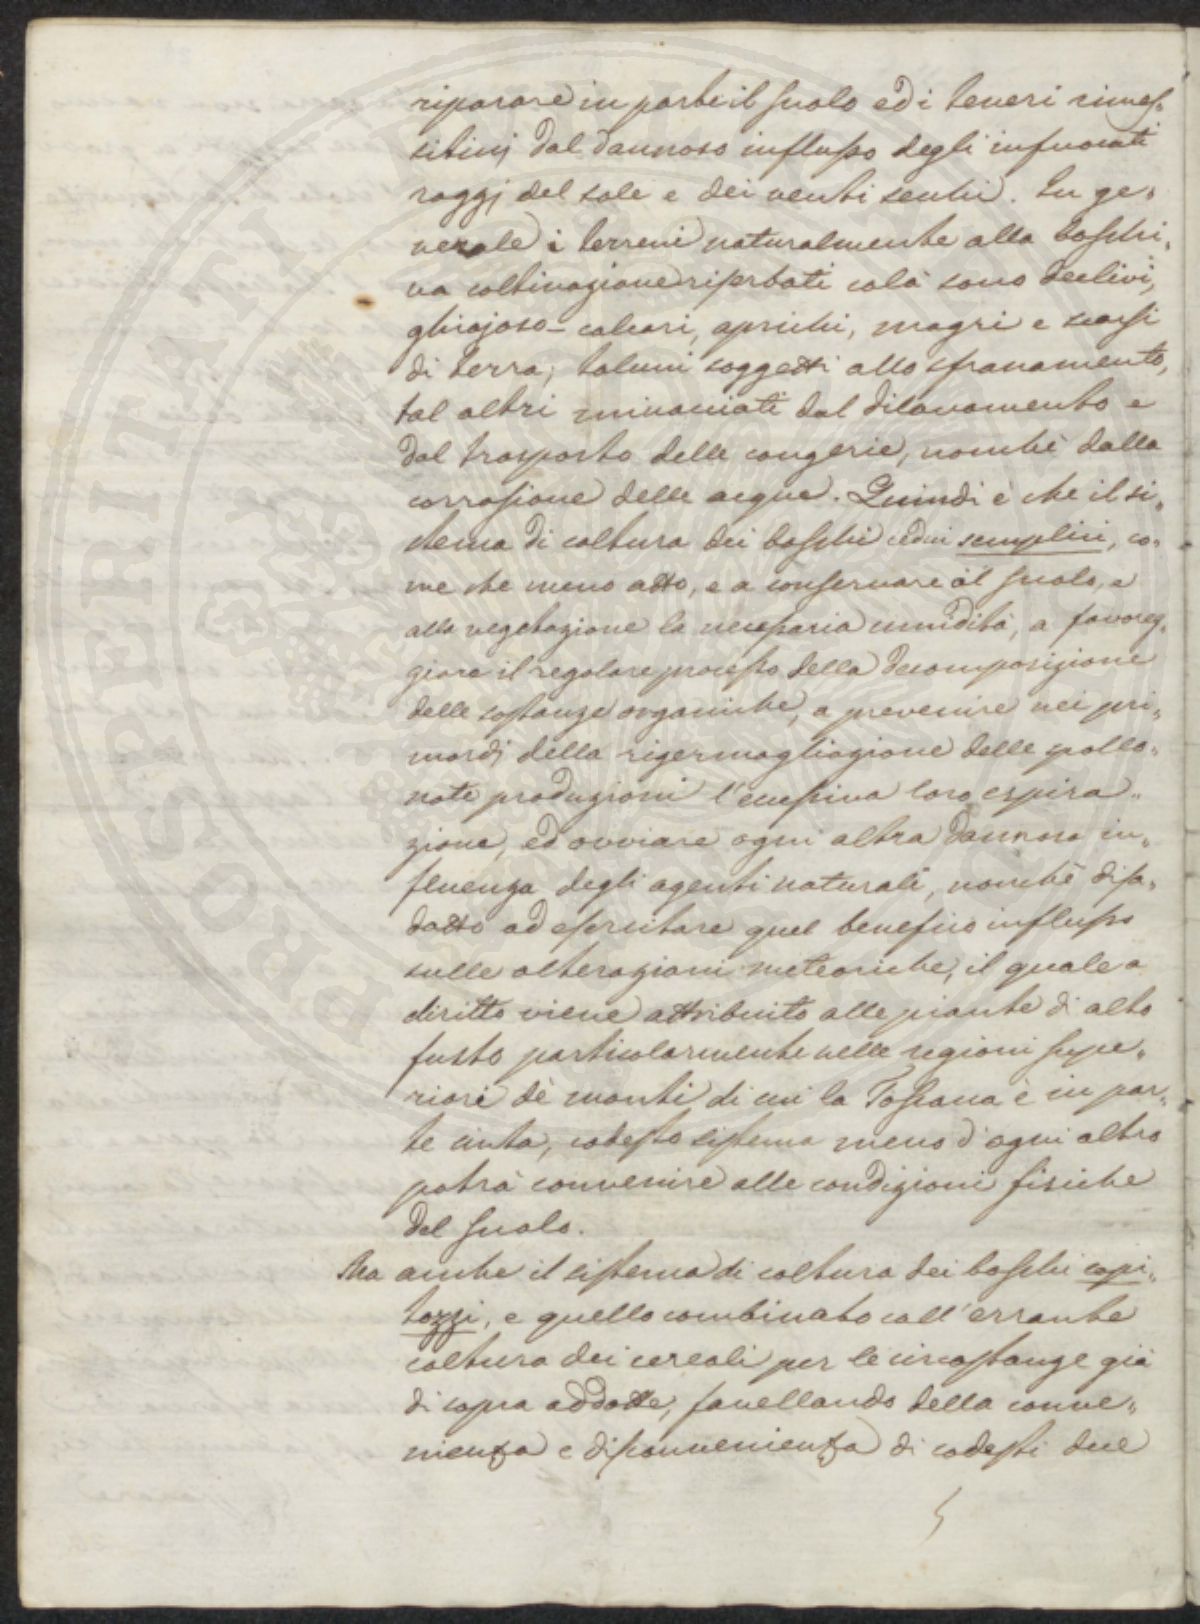 riparare in parte il suolo ed i teneri rimes-
sitivj dal dannoso influsso degli infuocati
raggj del sole e dei venti sciolti. In ge-
nerale i terreni naturalmente alla boschi-
va coltivazione riserbati colà sono declivi,
ghiajoso-calcari, aprichi, magri e scarsi
di terra; taluni soggetti allo sfranamento,
tal altri minacciati dal dilavamento e
dal trasporto delle congerie, nonchè dalla
corrasione delle acque. Quindi è che il si-
stema di coltura dei boschi cedui semplici, co-
me che meno atto, e a conservare al suolo, e
alla vegetazione la necessaria umidità, a favoreg-
giare il regolare processo della decomposizione
delle sostanze organiche, a prevenire nei pri-
mordj della rigermogliazione delle pollo-
nate produzioni l'eccessiva loro espira-
zione, ed ovviare ogni altra dannosa in-
fluenza degli agenti naturali, nonchè disa-
datto ad esercitare quel benefico influsso
sulle alterazioni meteoriche, il quale a
diritto viene attribuito alle piante di alto
fusto particolarmente nelle regioni supe-
riori dè monti di cui la Toscana è in par-
te cinta, codesto sistema meno d'ogni altro
potrà convenire alle condizioni fisiche
del suolo.
Ma anche il sistema di coltura dei boschi capi-
tozzi, e quello combinato coll'errante
coltura dei cereali per le circostanze già
di sopra addotte, favellando della conve-
nienza e disconvenienza di codesti due
PROSPERITATI